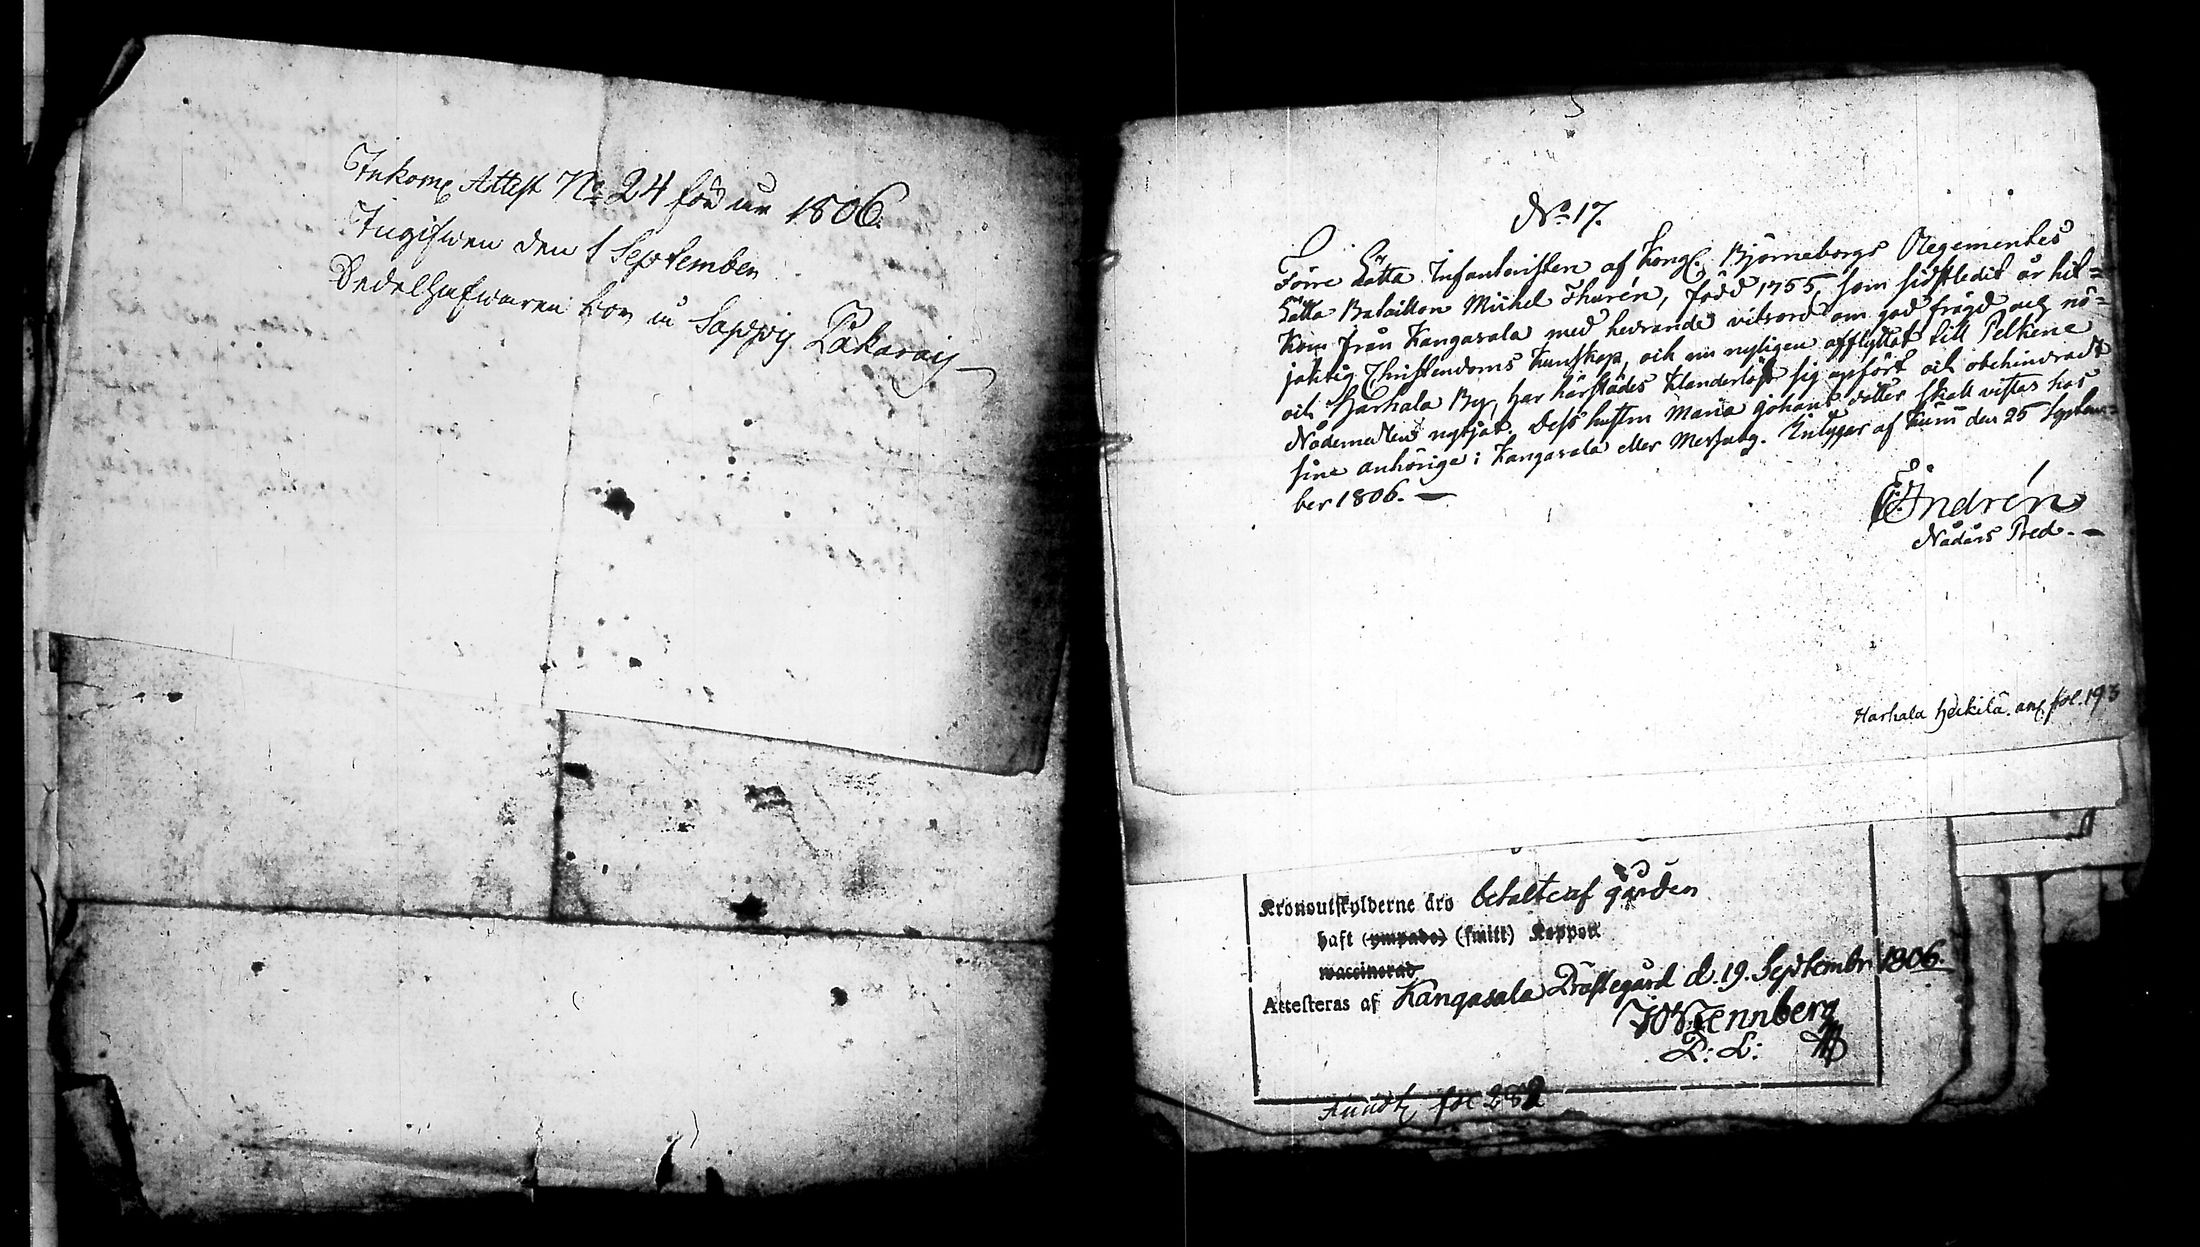 Inkom: Attest No 24 för år 1806.
Ingifwen den 1 September
Bor i Sappij
No 17.
Förre Lätta Infanteristen af Kongl. Björneborgs Regementes
Lätta Bataillon Michel Thurén, född 1755, som sidstledit år hit=
kom från Kangasala med hedrande vitsord om god frägd och nö=
jaktig Christendoms kunskap, och nu nyligen afflyttat till Pelkene
och Harhala By, har härstädes klanderlöst sig upfört och obehindradt
Nådemedlen nytjat. Dess hustru Maria Johans dotter skall vistas hos
sine anhörige i Kangasala eller Messuby. Intygar af den 25 Septem=
ber 1806. —
Indrén
Nådårs Pred. —
Harhala Heikilä. anf. fol. 193
Kronoutskylderne äro betalte af gården
haft (ympade) (smitt) Koppor
waccinerad
Attesteras af Kangasala Prästegård d. 19. Septembr 1806.
Wennberg
P: L:
fol 282